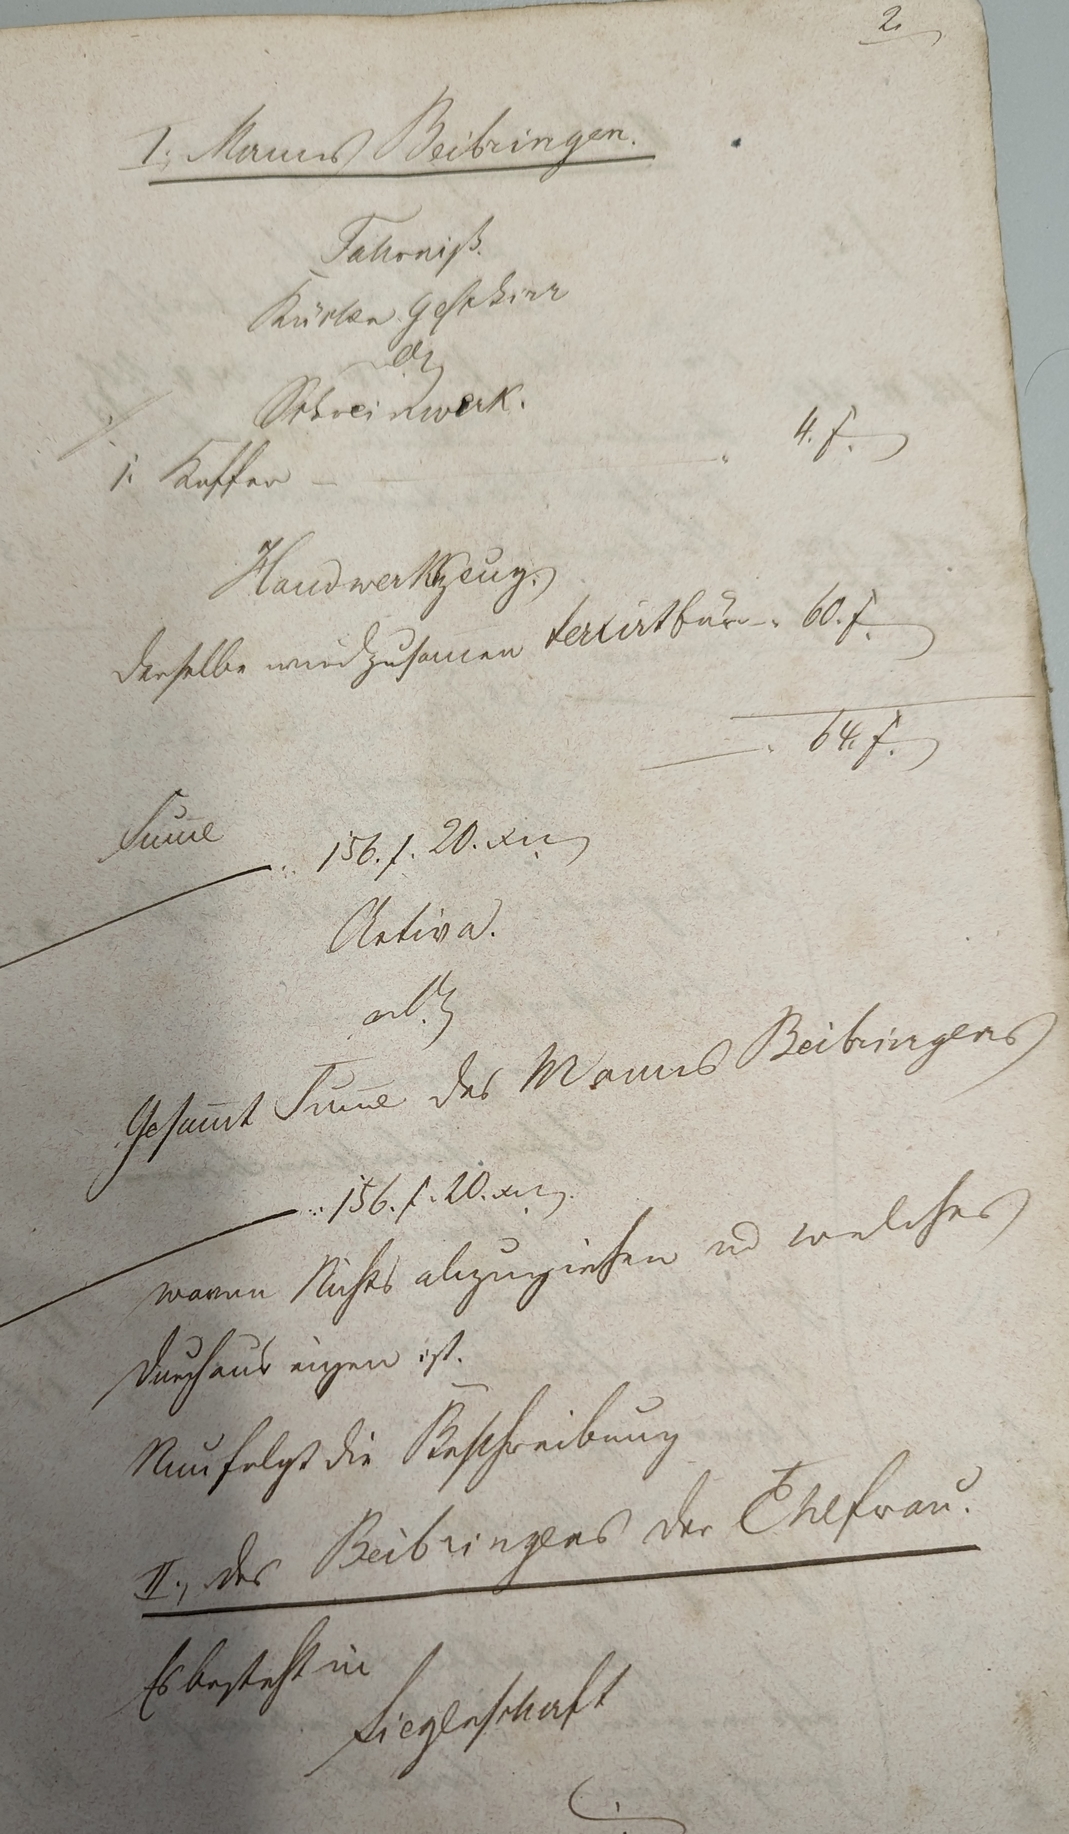 2.
I. Manns Beibringen.
Fahrniß.
Küchen Geschirr
Schreinwerk.
1. Koffer — 4. f.
Handwerkzeug.
Derselbe wird zusamen taxirt für — 60. f.
— 64. f.
Sume
156. f. 20. xr
Activa.
Gesamt Sume des Manns Beibringens
156. f. 20. xr
wovon Nichts abzuziehen und welches
durchaus eigen ist.
Nun folgt die Beschreibung
II., des Beibringens der Ehefrau.
Es besteht in
Liegenschaft